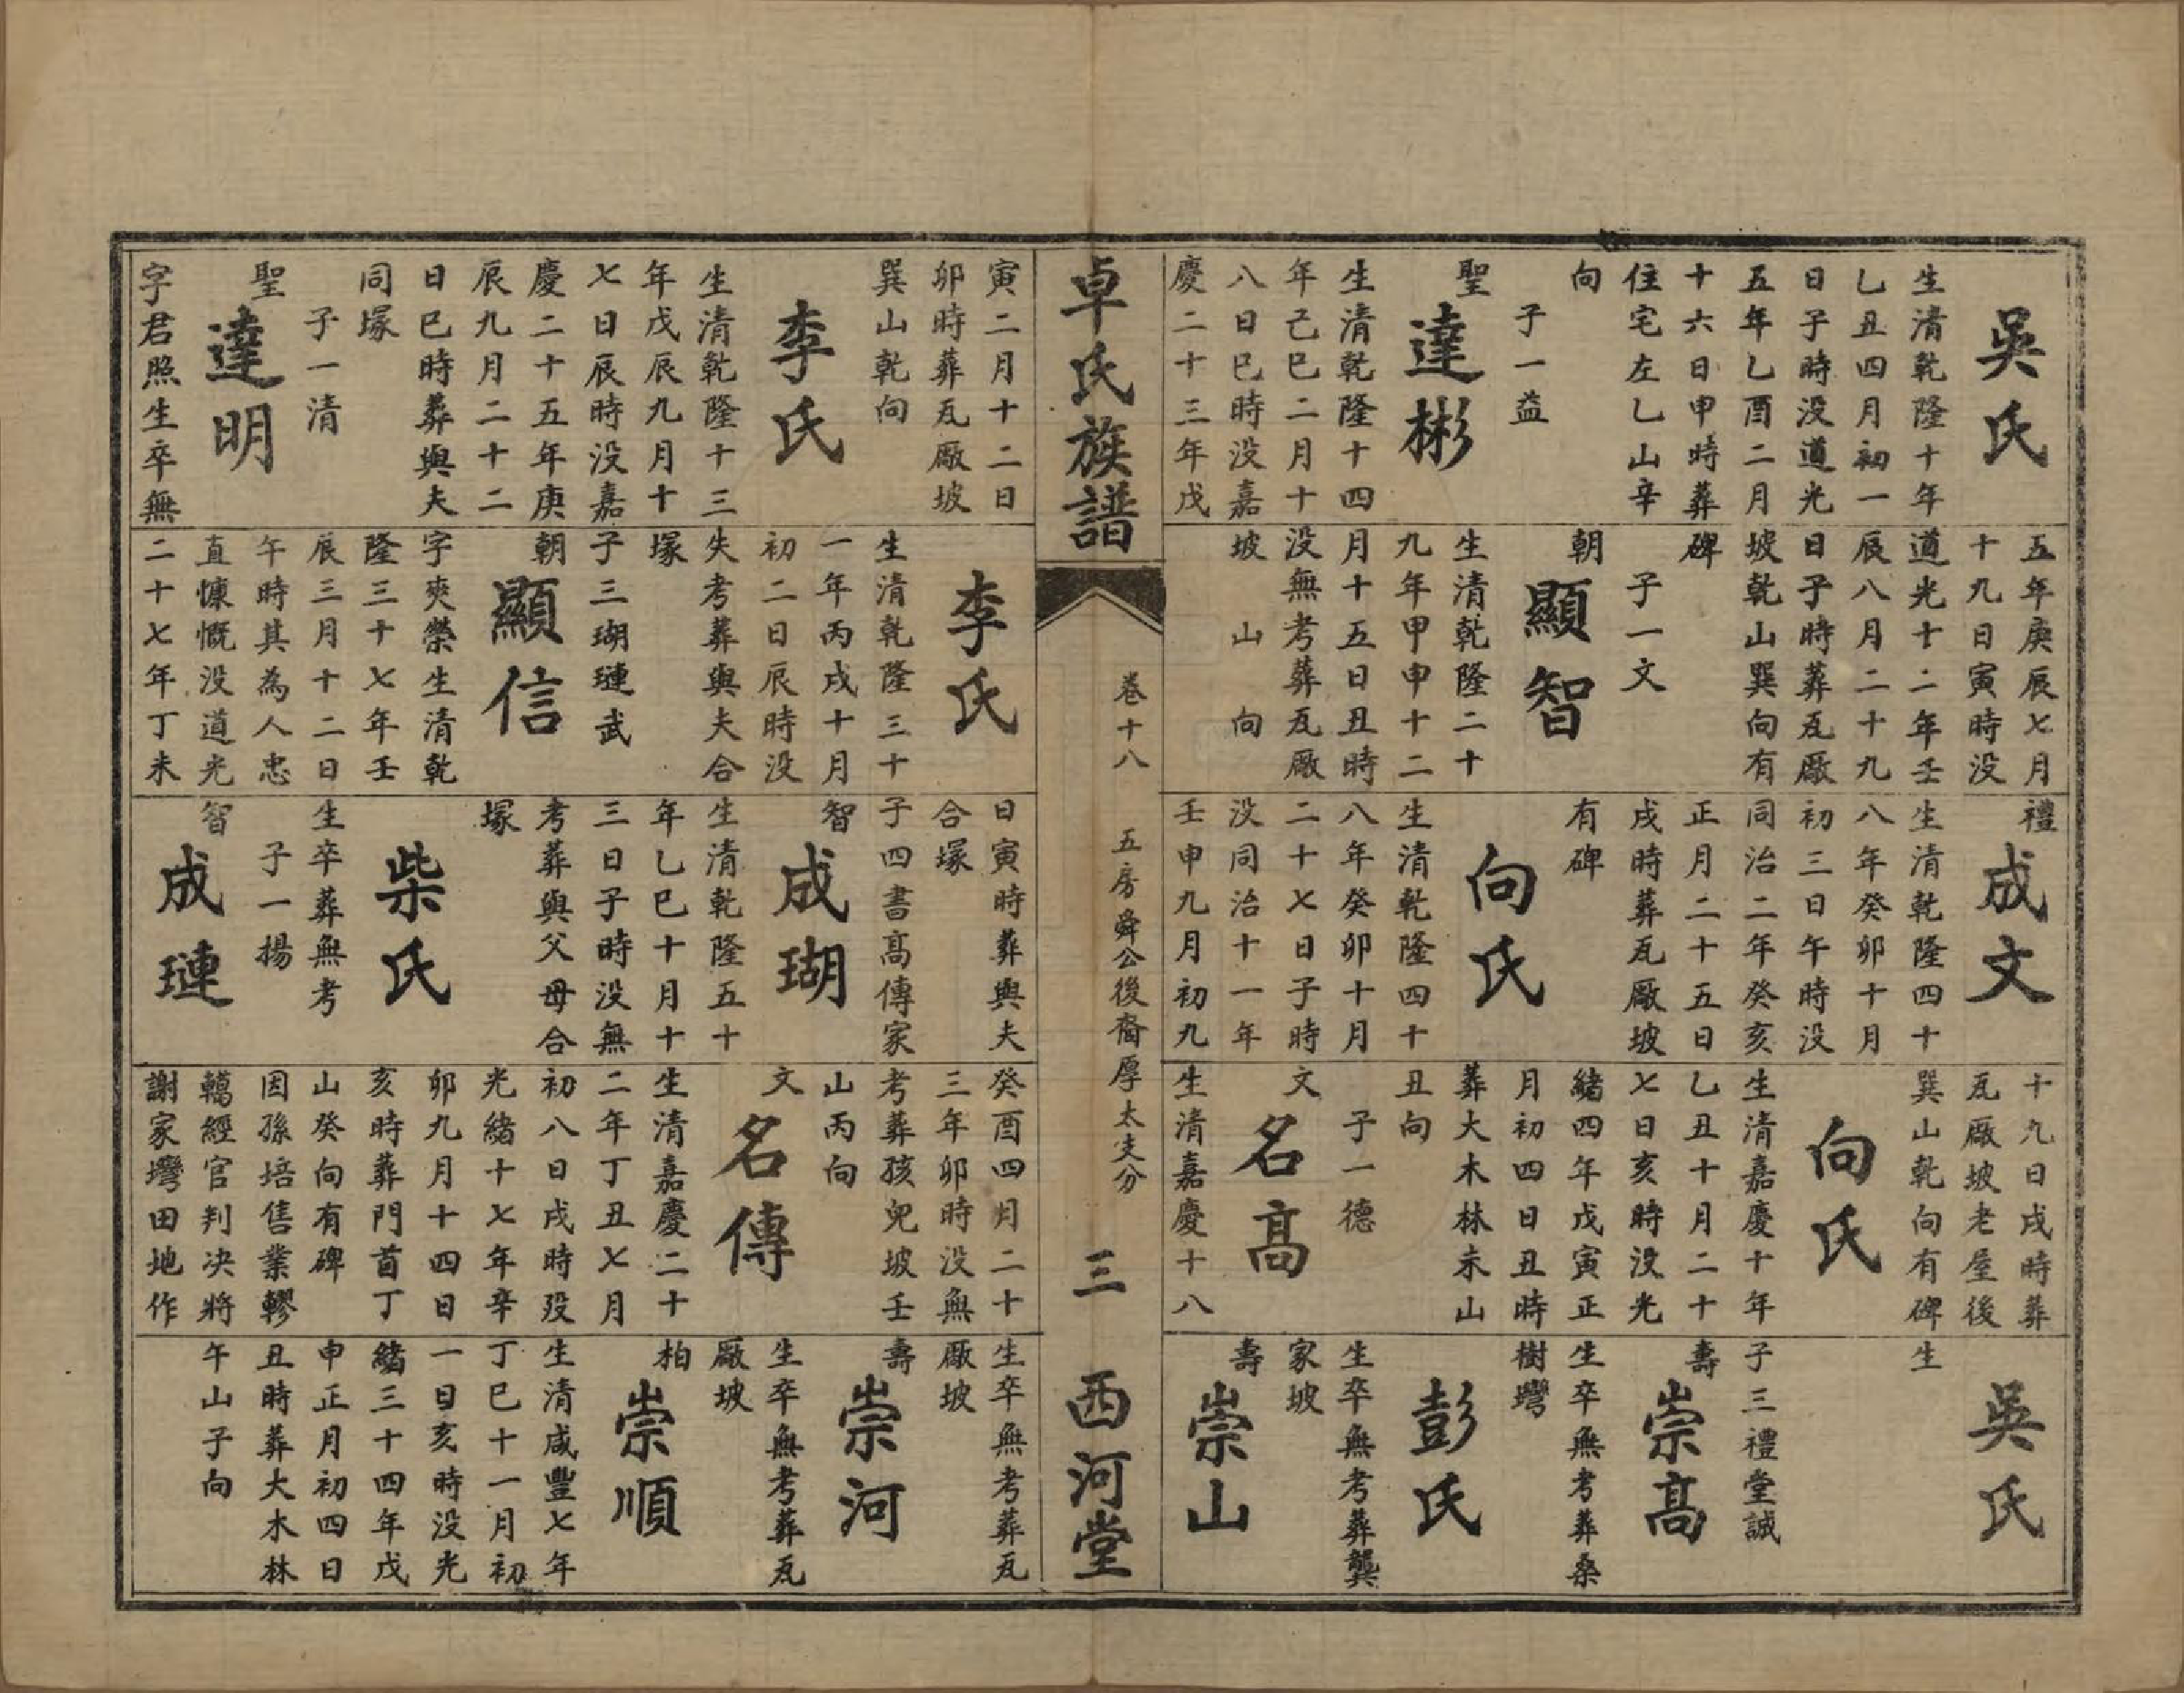 吳氏
生清乾隆十年
乙丑四月初一
日子時没道光
五年乙酉二月
十六日申時葬
住宅左乙山辛
向
子一益
聖
達彬
生清乾隆十四
年己巳二月十
八日巳時没嘉
慶二十三年戊
五年庚辰七月
十九日寅時没
道光十二年壬
辰八月二十九
日子時葬瓦廠
坡乾山巽向有
碑
子一文
朝
顯智
生清乾隆二十
九年甲申十二
月十五日丑時
没無考葬瓦廠
坡 山 向
禮
成文
生清乾隆四十
八年癸卯十月
初三日午時没
同治二年癸亥
正月二十五日
戌時葬瓦廠坡
有碑
向氏
生清乾隆四十
八年癸卯十月
二十七日子時
没同治十一年
壬申九月初九
十九日戌時葬
瓦廠坡老屋後
巽山乾向有碑
向氏
生清嘉慶十年
乙丑十月二十
七日亥時没光
緒四年戊寅正
月初四日丑時
葬大木林未山
丑向
子一德
文
名高
生清嘉慶十八
吳氏
生
子三禮堂誠
壽
崇高
生卒無考葬桑
樹灣
彭氏
生卒無考葬龔
家坡
壽
崇山
卓氏族譜
卷十八
五房舜公後裔厚太支分
三
西河堂
寅二月十二日
卯時葬瓦廠坡
巽山乾向
李氏
生清乾隆十三
年戊辰九月十
七日辰時没嘉
慶二十五年庚
辰九月二十二
日巳時葬與夫
同塚
子一清
聖
達明
字君照生卒無
李氏
生清乾隆三十
一年丙戌十月
初二日辰時没
失考葬與夫合
塚
子三瑚璉武
朝
顯信
字爽榮生清乾
隆三十七年壬
辰三月十二日
午時其為人忠
直慷慨没道光
二十七年丁未
日寅時葬與夫
合塚
子四書高傳家
智
成瑚
生清乾隆五十
年乙巳十月十
三日子時没無
考葬與父母合
塚
柴氏
生卒葬無考
子一揚
智
成璉
癸酉四月二十
三年卯時没無
考葬孩兒坡壬
山丙向
文
名傳
生清嘉慶二十
二年丁丑七月
初八日戌時殁
光緒十七年辛
卯九月十四日
亥時葬門首丁
山癸向有碑
因孫培售業轇
轕經官判决將
謝家灣田地作
生卒無考葬瓦
廠坡
壽
崇河
生卒無考葬瓦
廠坡
柏
崇順
生清咸豐七年
丁巳十一月初
一日亥時没光
緒三十四年戊
申正月初四日
丑時葬大木林
午山子向